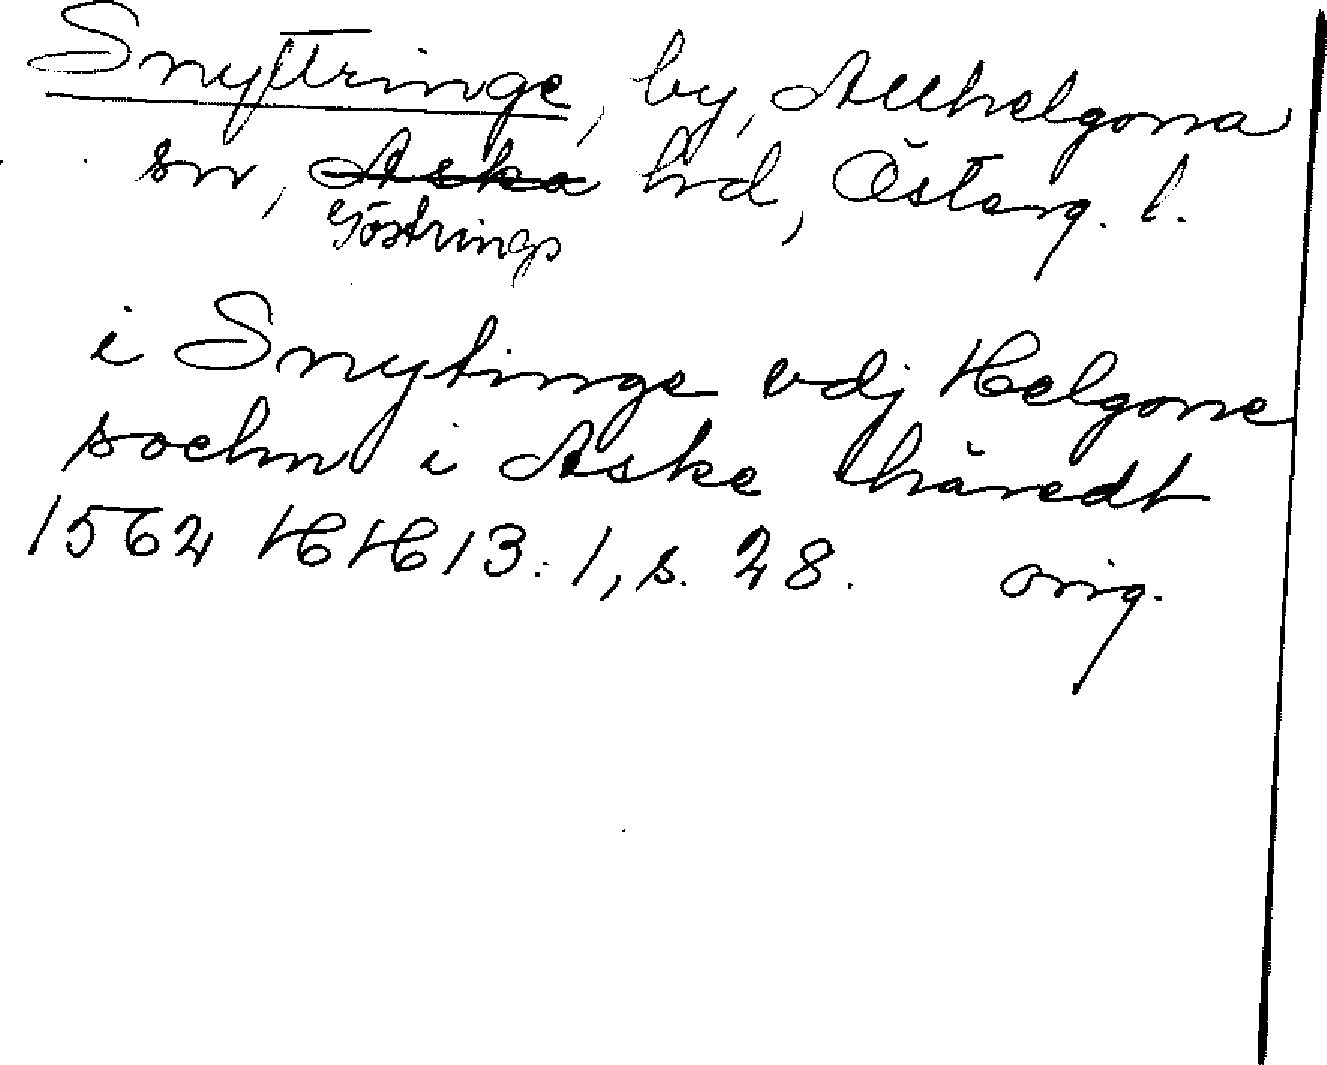 Snyttringe, by, Allhelgona
sn, Aska hrd, Österg. l.
Göstrings
i Snytinge vdj Helgone
sochn i Aske häredt
1562 HH 13:1, s. 28. orig.